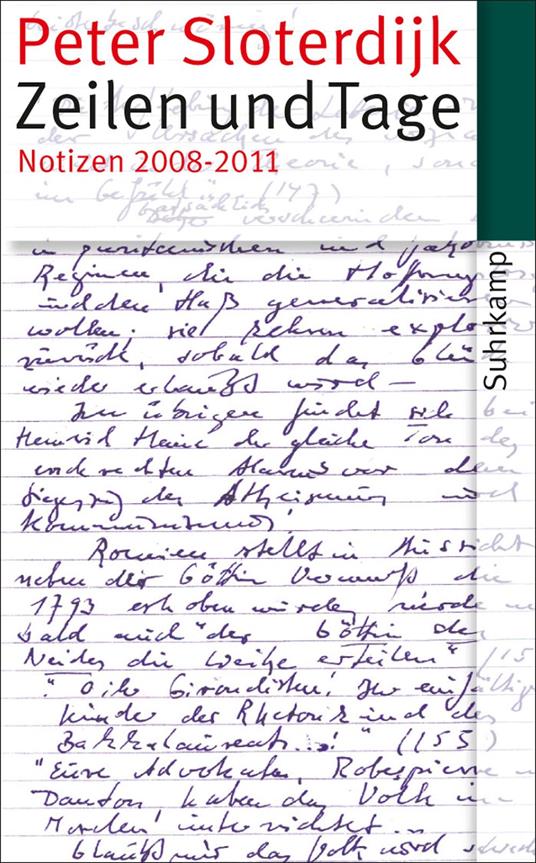 Peter Sloterdijk
Zeilen und Tage
Notizen 2008-2011
Suhrkamp
im Gefühl" (147)
tatsächlich
verschwinden
in puritanischen und
Regimen, die die Hoffnung
und den Haß generalisieren
wollen; sie kehren
zurück, sobald das
wieder erlaubt wird –
Im übrigen findet sich bei
Heinrich Heine der gleiche Ton des
vor dem
Siegeszug des Atheismus und
Kommunismus!
stellt in Aussicht
neben der Göttin Vernunft die
1793 erhoben wurde, werde
bald auch "der Göttin des
Neides die Weihe erteilen" (15
"O ihr Girondisten! Ihr einfältige
Kinder der Rhetorik und des
Bakkalaureats...!" (155)
"Eure Advokaten, Robespierre
Danton, haben das Volk im
Morden unterrichtet...
Glaubt mir das Volk wird